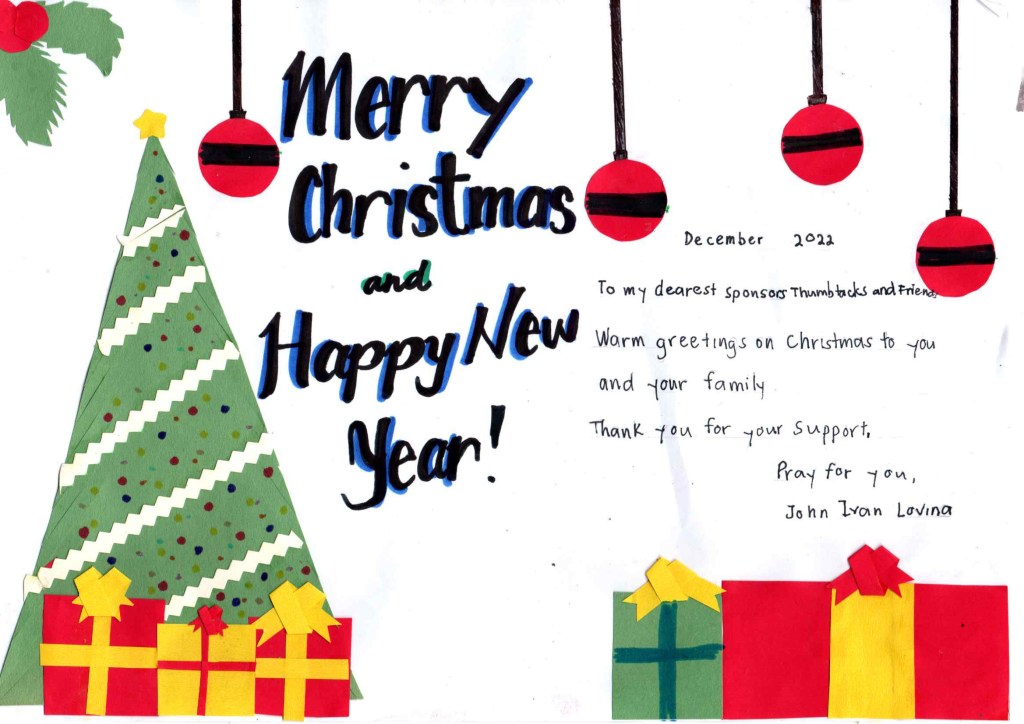 Merry
Christmas
and
Happy New
Year!
December 2022
To my dearest sponsors Thumbtacks and Friends
Warm greetings on Christmas to you
and your family
Thank you for your support.
Pray for you,
John Ivan Lovina